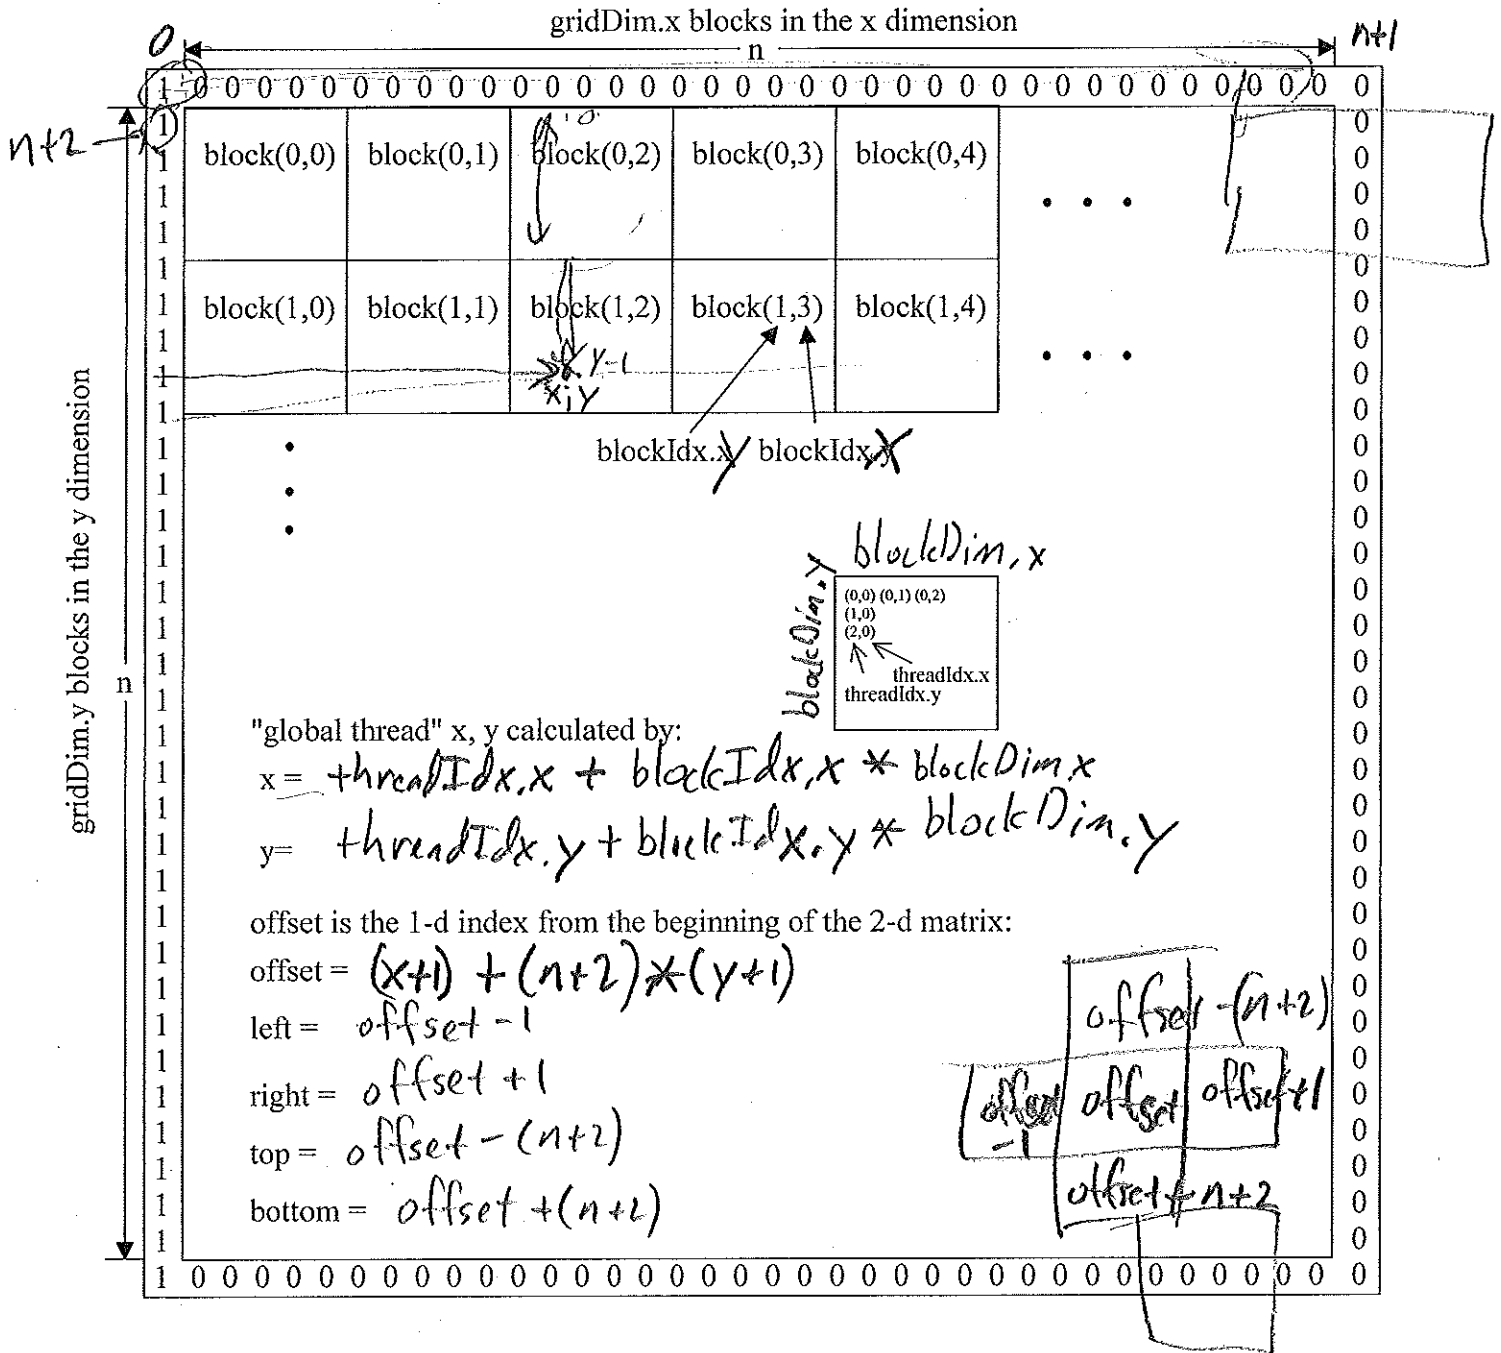 gridDim.x blocks in the x dimension
0 n n+1
1 0 0 0 0 0 0 0 0 0 0 0 0 0 0 0 0 0 0 0 0 0 0 0 0 0 0 0 0 0 0 0 0 0 0 0 0 0
n+2
block(0,0) block(0,1) block(0,2) block(0,3) block(0,4) . . .
block(1,0) block(1,1) block(1,2) block(1,3) block(1,4) . . .
y-1
x,y
blockIdx.y blockIdx.x
gridDim.y blocks in the y dimension
n
blockDim.x
blockDim.y
(0,0) (0,1) (0,2)
(1,0)
(2,0)
threadIdx.x
threadIdx.y
"global thread" x, y calculated by:
x = threadIdx.x + blockIdx.x * blockDim.x
y= threadIdx.y + blockIdx.y * blockDim.y
offset is the 1-d index from the beginning of the 2-d matrix:
offset = (x+1) + (n+2)*(y+1)
left = offset -1
right = offset +1
top = offset - (n+2)
bottom = offset +(n+2)
offset -(n+2)
offset -1 offset offset+1
offset + n+2
1 0 0 0 0 0 0 0 0 0 0 0 0 0 0 0 0 0 0 0 0 0 0 0 0 0 0 0 0 0 0 0 0 0 0 0 0 0